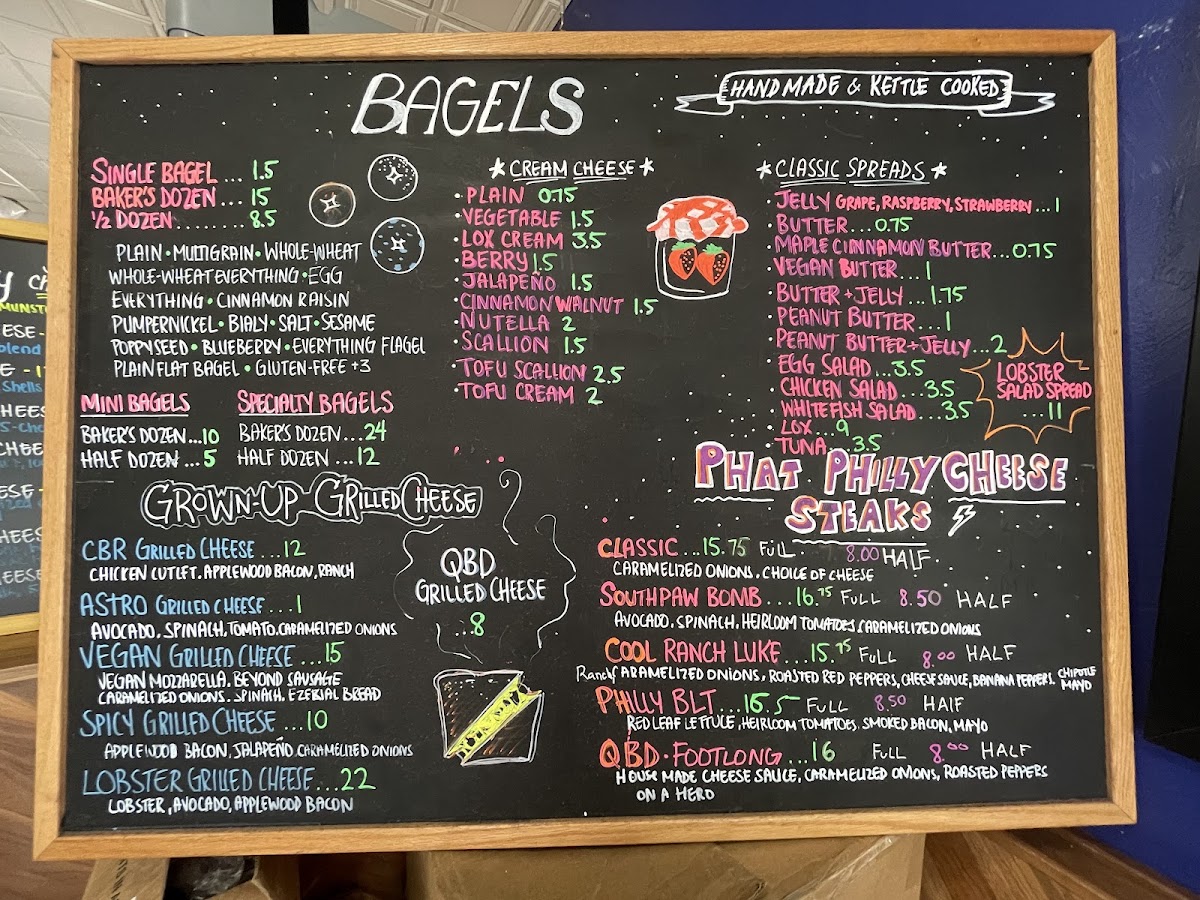 BAGELS
HANDMADE & KETTLE COOKED
SINGLE BAGEL ... 1.5
BAKER'S DOZEN ... 15
½ DOZEN ........ 8.5
PLAIN • MULTIGRAIN • WHOLE-WHEAT
WHOLE-WHEAT EVERYTHING • EGG
EVERYTHING • CINNAMON RAISIN
PUMPERNICKEL • BIALY • SALT • SESAME
POPPYSEED • BLUEBERRY • EVERYTHING FLAGEL
PLAIN FLAT BAGEL • GLUTEN-FREE +3
MINI BAGELS
BAKER'S DOZEN ...10
HALF DOZEN ... 5
SPECIALTY BAGELS
BAKER'S DOZEN ...24
HALF DOZEN ...12
CREAM CHEESE
• PLAIN 0.75
• VEGETABLE 1.5
• LOX CREAM 3.5
• BERRY 1.5
• JALAPEÑO 1.5
• CINNAMON WALNUT 1.5
• NUTELLA 2
• SCALLION 1.5
• TOFU SCALLION 2.5
• TOFU CREAM 2
CLASSIC SPREADS
• JELLY GRAPE, RASPBERRY, STRAWBERRY ... 1
• BUTTER ... 0.75
• MAPLE CINNAMON BUTTER ... 0.75
• VEGAN BUTTER ... 1
• BUTTER + JELLY ... 1.75
• PEANUT BUTTER ... 1
• PEANUT BUTTER + JELLY ... 2
• EGG SALAD ... 3.5
• CHICKEN SALAD ... 3.5
• WHITEFISH SALAD ... 3.5
• LOX ... 9
• TUNA ... 3.5
LOBSTER
SALAD SPREAD
... 11
GROWN-UP GRILLED CHEESE
CBR GRILLED CHEESE ...12
CHICKEN CUTLET, APPLEWOOD BACON, RANCH
ASTRO GRILLED CHEESE ... 1
AVOCADO, SPINACH, TOMATO, CARAMELIZED ONIONS
VEGAN GRILLED CHEESE ...15
VEGAN MOZZARELLA, BEYOND SAUSAGE
CARAMELIZED ONIONS, SPINACH, EZEKIAL BREAD
SPICY GRILLED CHEESE ...10
APPLEWOOD BACON, JALAPEÑO, CARAMELIZED ONIONS
LOBSTER GRILLED CHEESE ...22
LOBSTER, AVOCADO, APPLEWOOD BACON
QBD
GRILLED CHEESE
...8
PHAT PHILLY CHEESE
STEAKS
CLASSIC ...15.75 FULL 8.00 HALF
CARAMELIZED ONIONS, CHOICE OF CHEESE
SOUTHPAW BOMB ...16.75 FULL 8.50 HALF
AVOCADO, SPINACH, HEIRLOOM TOMATOES, CARAMELIZED ONIONS
COOL RANCH LUKE ...15.75 FULL 8.00 HALF
Ranch CARAMELIZED ONIONS, ROASTED RED PEPPERS, CHEESE SAUCE, BANANA PEPPERS, CHIPOTLE MAYO
PHILLY BLT ...16.5 FULL 8.50 HALF
RED LEAF LETTUCE, HEIRLOOM TOMATOES, SMOKED BACON, MAYO
QBD • FOOTLONG ...16 FULL 8.00 HALF
HOUSE MADE CHEESE SAUCE, CARAMELIZED ONIONS, ROASTED PEPPERS
ON A HERO